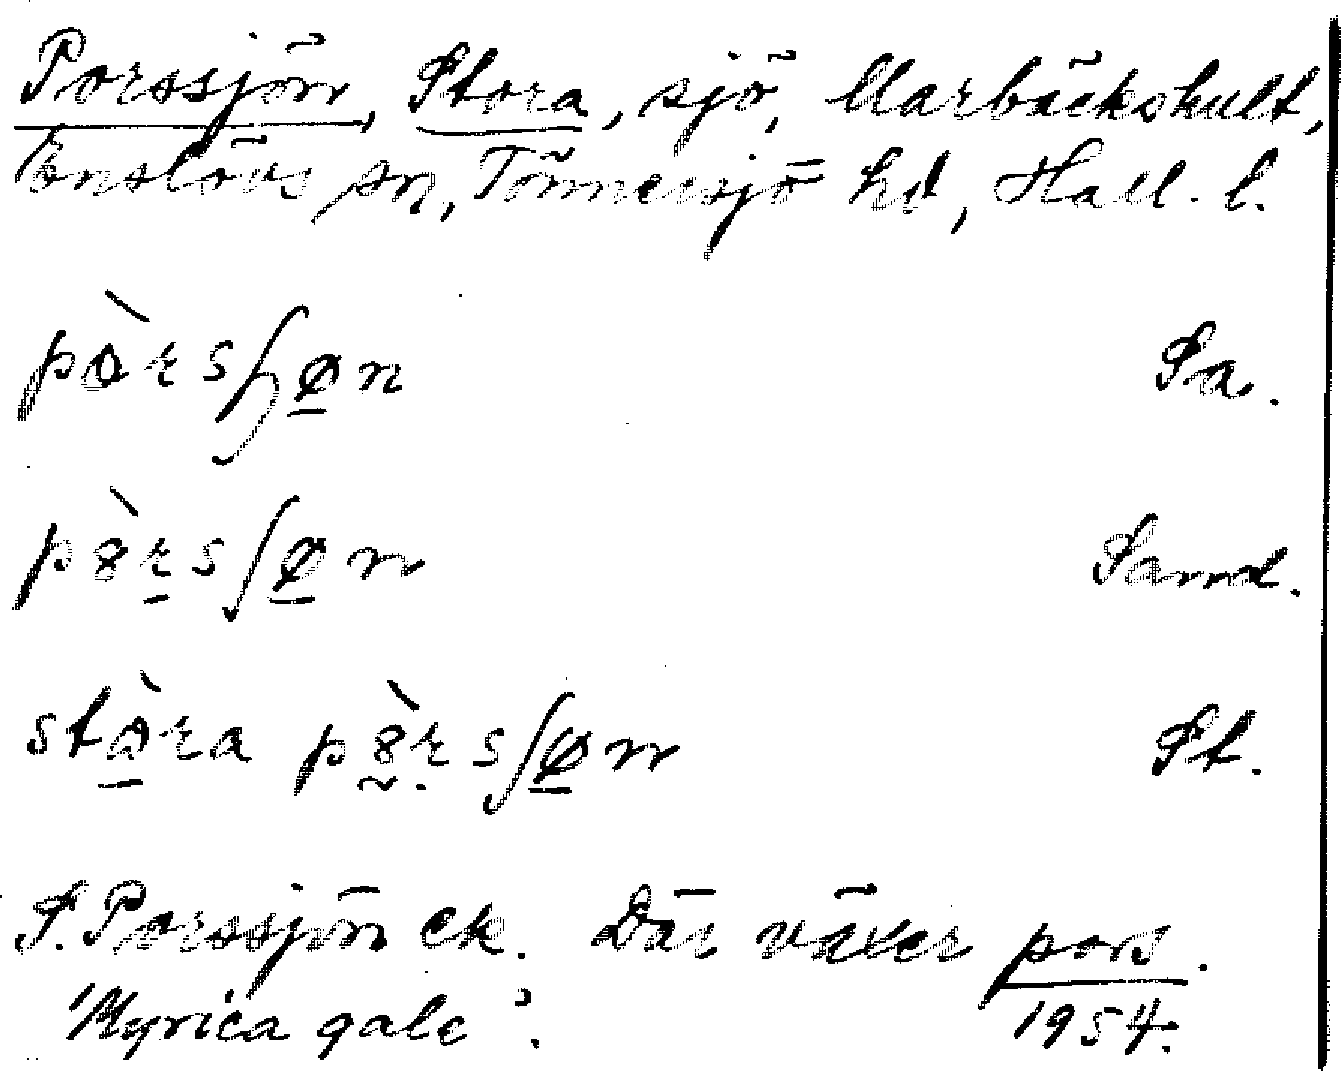 Porssjön, Stora, sjö, Marbäckshult,
Enslövs sn, Tönnersjö hd, Hall. l.
pàrsʃøn Sa.
pòrsʃøn Sand.
stòra pòrsʃøn St.
S. Porssjön ek. Där växer pors.
'Myrica gale'. 1954.